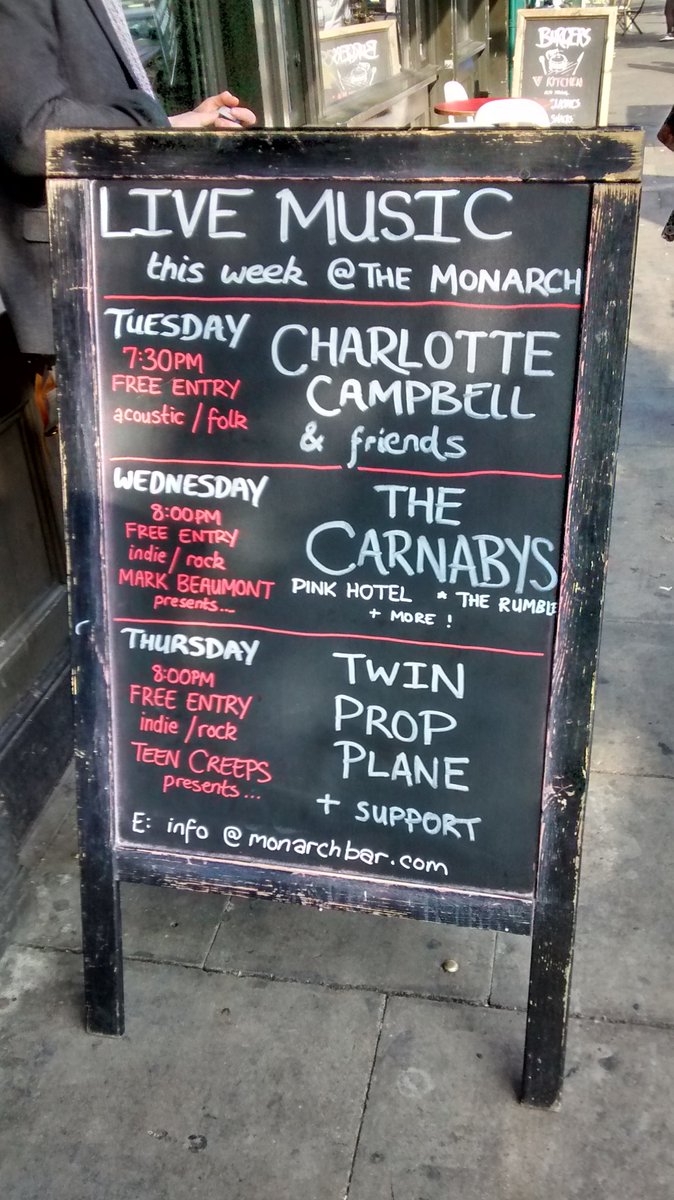 BURGERS
KITCHEN
CLASSICS
LIVE MUSIC
this week @ THE MONARCH
TUESDAY
7:30PM
FREE ENTRY
acoustic / folk
CHARLOTTE
CAMPBELL
& friends
WEDNESDAY
8:00PM
FREE ENTRY
indie / rock
MARK BEAUMONT
presents...
THE
CARNABYS
PINK HOTEL * THE RUMBLE
+ MORE !
THURSDAY
8:00PM
FREE ENTRY
indie / rock
TEEN CREEPS
presents...
TWIN
PROP
PLANE
+ SUPPORT
E: info @ monarchbar.com